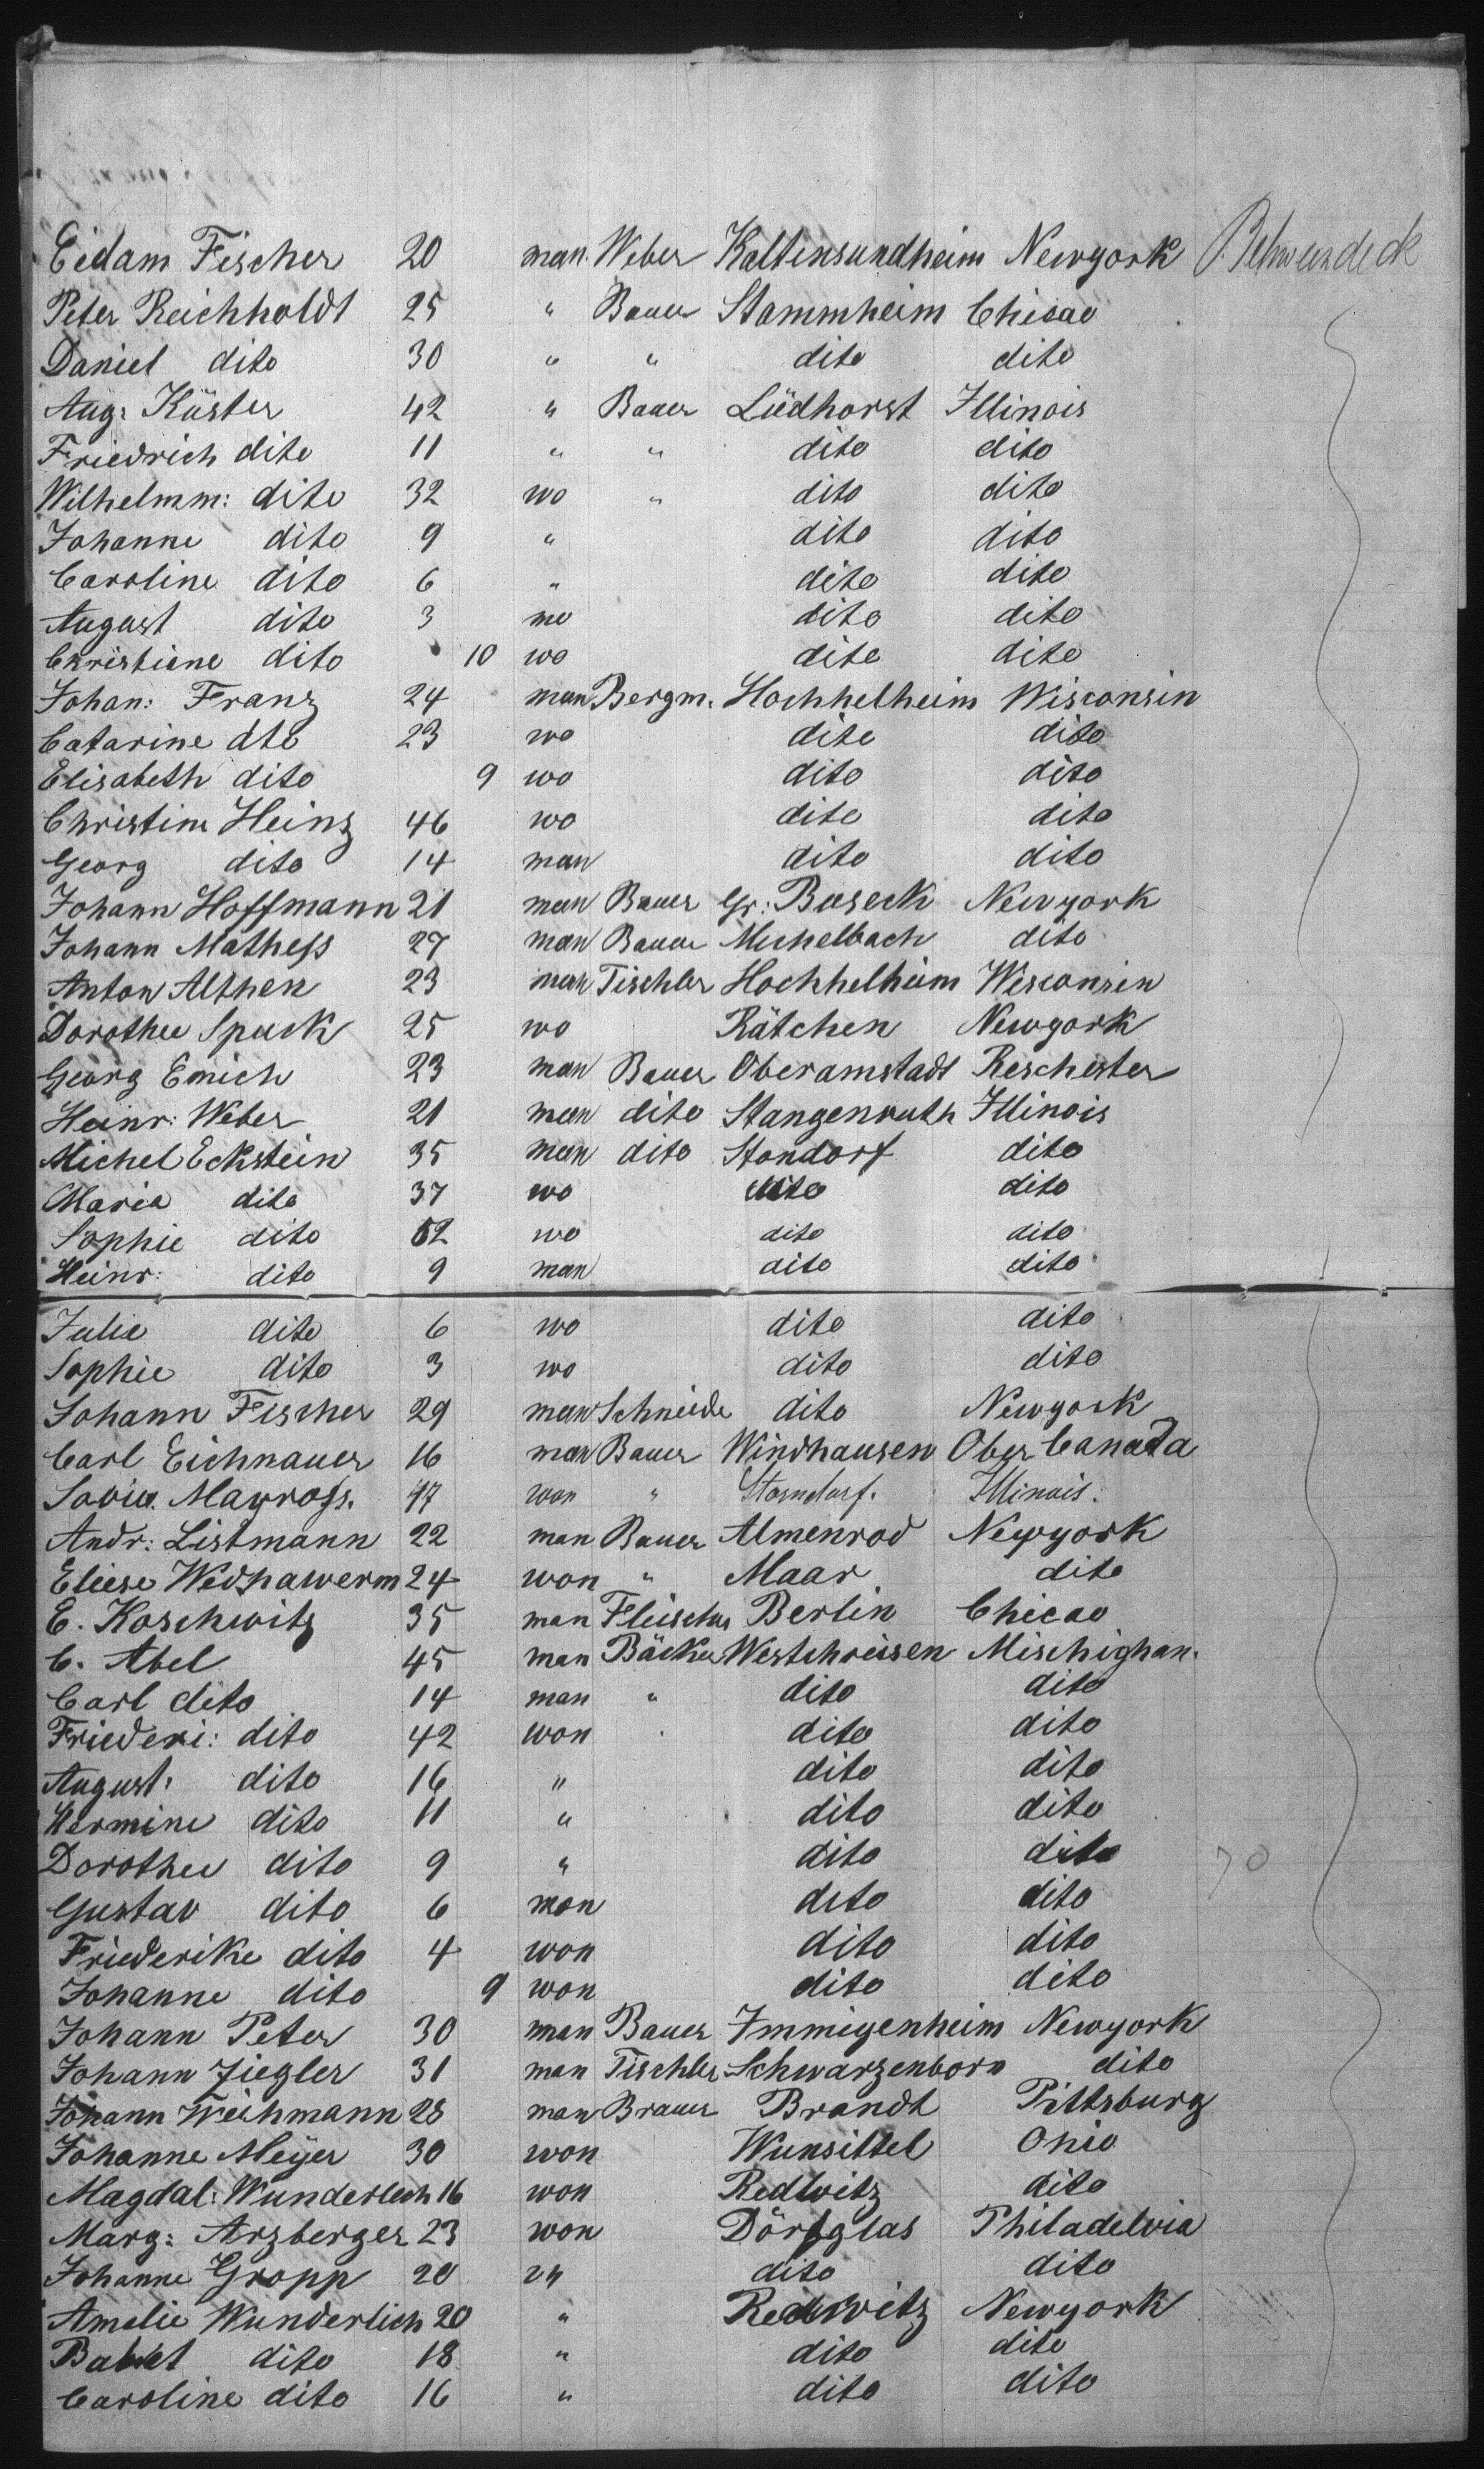 Eidam Fischer 20 man. Weber Kaltensundheim Newyork
Peter Reichholdt 25 " Bauer Stammheim Chicao
Daniel dito 30 " " dito dito
Aug: Küster 42 " Bauer Lüdhorst Illinois
Friedrich dito 11 " " dito dito
Wilhelmm: dito 32 wo " dito dito
Johanne dito 9 " dito dito
Caroline dito 6 " dito dito
August dito 3 mo dito dito
Christiene dito 10 wo dito dito
Johan: Franz 24 man Bergm. Hochhelheim Wisconsin
Catarine dto 23 wo dito dito
Elisabeth dito 9 wo dito dito
Christine Heinz 46 wo dito dito
Georg dito 14 man dito dito
Johann Hoffmann 21 man Bauer Gr: Buseck Newyork
Johann Mathess 27 man Bauer Michelbach dito
Anton Althen 23 man Tischler Hochhelheim Wisconsin
Dorothee Spuck 25 wo Rätchen Newyork
Georg Emich 23 man Bauer Oberamstadt Reschester
Heinr: Weber 21 man dito Stangenruth Illinois
Michel Eckstein 35 man dito Stondorf dito
Maria dito 37 wo dito dito
Sophie dito 12 wo dito dito
Heinr: dito 9 man dito dito
Julie dito 6 wo dito dito
Sophie dito 3 wo dito dito
Johann Fischer 29 man Schneide dito Newyork
Carl Eichnauer 16 man Bauer Windhausen Ober Canada
47 won " Storndorf. Illinois.
Andr: Listmann 22 man Bauer Almenrod Newyork
Eliese 24 won " Maar dito
E. Koschwitz 35 man Fleischer Berlin Chicao
C. Abel 45 man Bäcker Westchreisen Mischighan.
Carl dito 14 man " dito dito
Friederi: dito 42 won dito dito
August: dito 16 " dito dito
Hermine dito 11 " dito dito
Dorothee dito 9 " dito dito 70
Gustav dito 6 man dito dito
Friederike dito 4 won dito dito
Johanne dito 9 won dito dito
Johann Peter 30 man Bauer Immigenheim Newyork
Johann Ziegler 31 man Tischler Schwarzenborn dito
Johann Weihmann 28 man Brauer Brandt Pittsburg
Johanne Meÿer 30 won Wunsittel Ohio
Magdal: Wunderlich 16 won Redwitz dito
Marg: Arzberger 23 won Dörfglas Philadelvia
Johanne Gropp 20 " dito dito
Amelie Wunderlich 20 " Redwitz Newyork
Babet dito 18 " dito dito
Caroline dito 16 " dito dito